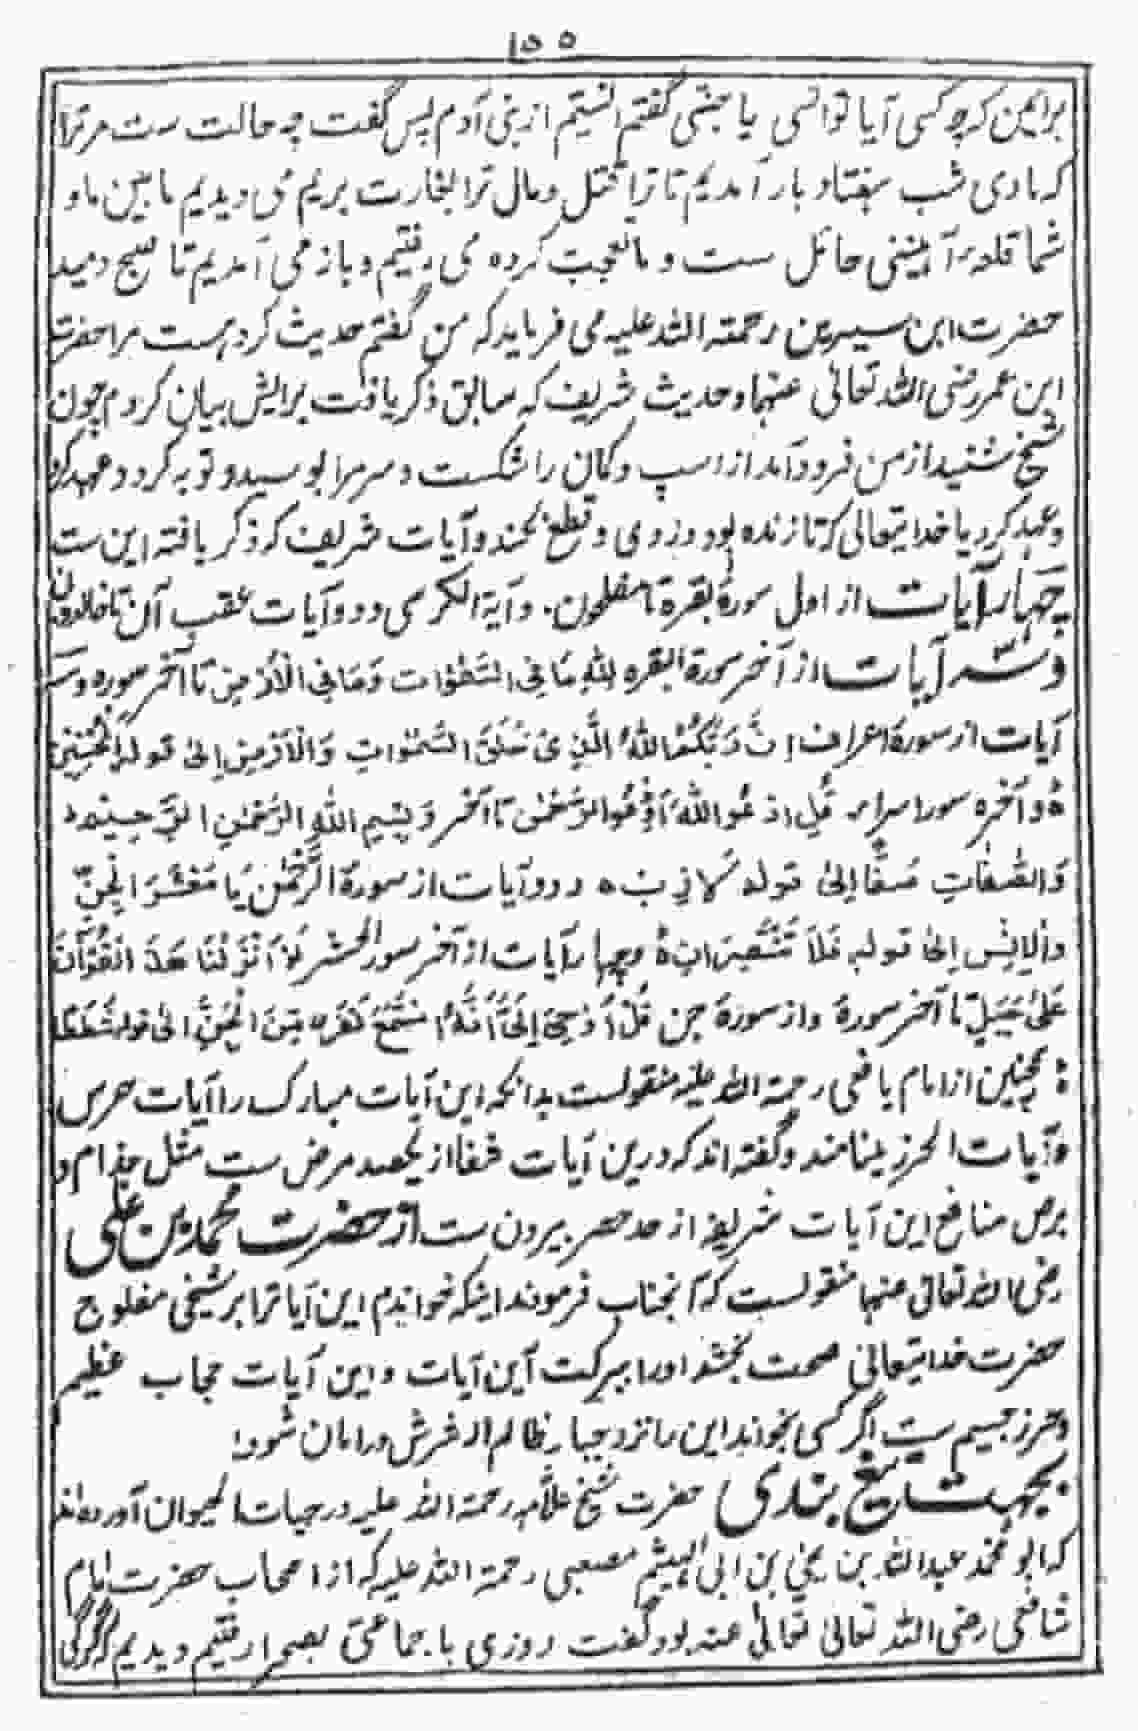 ۱۵۵
برایمن کرچه کسی آیا توانسی یا جنی گفتم انستیم از بنی آدم پس گفت چه حالت ست مر ترا
که مادی شب هفتاد بار آمدیم تا ترا بقتل و مال ترا بغارت بریم می دیدیم مابین ما و
شما قلعۀ آهنینی حائل ست و ما تعجب کرده می رفتیم و باز می آمدیم تا صبح دمید
حضرت ابن سیرین رحمته الله علیه می فرماید که من گفتم حدیث کرده ست مرا حضرت
ابن عمر رضی الله تعالی عنهما و حدیث شریف که سابق ذکر یافت برایش بیان کردم چون
شیخ شنید از من فرود آمد از اسپ و کمان را شکست و سر مرا بوسید و توبه کرد و عهد کرد
و عهد کرد با خدایتعالی که تا زنده بود دزدی و قطع نکند و آیات شریف که ذکر یافته این ست
چهار آیات از اول سورۀ بقرة تا مفلحون. و آیة الکرسی و دو آیات عقب آن تا خالدون
و سه آیات از آخر سورة البقره لِلّٰهِ مَا فِی السَّمٰوٰات وَمَا فِی الْاَرْضِ تا آخر سوره و سه
آیات از سورۀ اعراف اِنَّ رَبَّکُمُ اللّٰهُ الَّذِیْ خَلَقَ السَّمٰوٰاتِ وَالْاَرْضِ اِلیٰ قولہ الْمُحْسِنِیْنَ
ہ و آخرہ سورا سراء قُلِ ادْعُوا اللّٰهَ اَوِدْعُوا الرَّحْمٰنَ تا آخر وَ بِسْمِ اللّٰهِ الرَّحْمٰنِ الرَّحِیْمِ ہ
وَالصّٰفّٰتِ صَفًّا اِلیٰ قولہ لَازِبْ ہ و دو آیات از سورۃ الرَّحْمٰن یَا مَعْشَرَ الْجِنِّ
وَالْاِنْسِ اِلیٰ قولہ فَلَا تَنْتَصِرَانِ ہ و چهار آیات از آخر سور الحشر لَوْ اَنْزَلْنَا هَذَ الْقُرْاٰنَ
عَلیٰ جَبَلٍ تا آخر سورۃ و از سورۃ جن قُلْ اُوْحِیَ اِلَیَّ اَنَّهُ اسْتَمَعَ نَفَرٌ مِّنَ الْجِنِّ الیٰ قولہ شَطَطًا
؛ همچنین از امام یافعی رحمة الله علیه منقولست بدانکه این آیات مبارک را آیات حرس
و آیات الحرز مینامند و گفته اند که درین آیات شفا از یکصد مرض ست مثل جذام و
برص منافع این آیات شریفه از حد حصر بیرون ست از حضرت محمد بن علی
رضی الله تعالی عنهما منقولست که آنجناب فرموند اینکه خواندم این آیا ترا بر شیخی مفلوج
حضرت خدایتعالی صحت بخشد اورا ببرکت آین آیات و این آیات حجاب عظیم
و حرز جسیم ست اگر کسی بخواند این را نزد جبار ظالم از شرش در امان شود؛
بجهت تیغ بندی حضرت شیخ علامه رحمة الله علیه در حیات الحیوان آورده اند
که ابو محمد عبدالله بن یحیی بن ابی الهیثم مصعبی رحمة الله علیه که از اصحاب حضرت امام
شافعی رضی الله تعالی تعالی عنه بود گفت روزی با جماعتی بصحرا رفتیم دیدیم گرگی